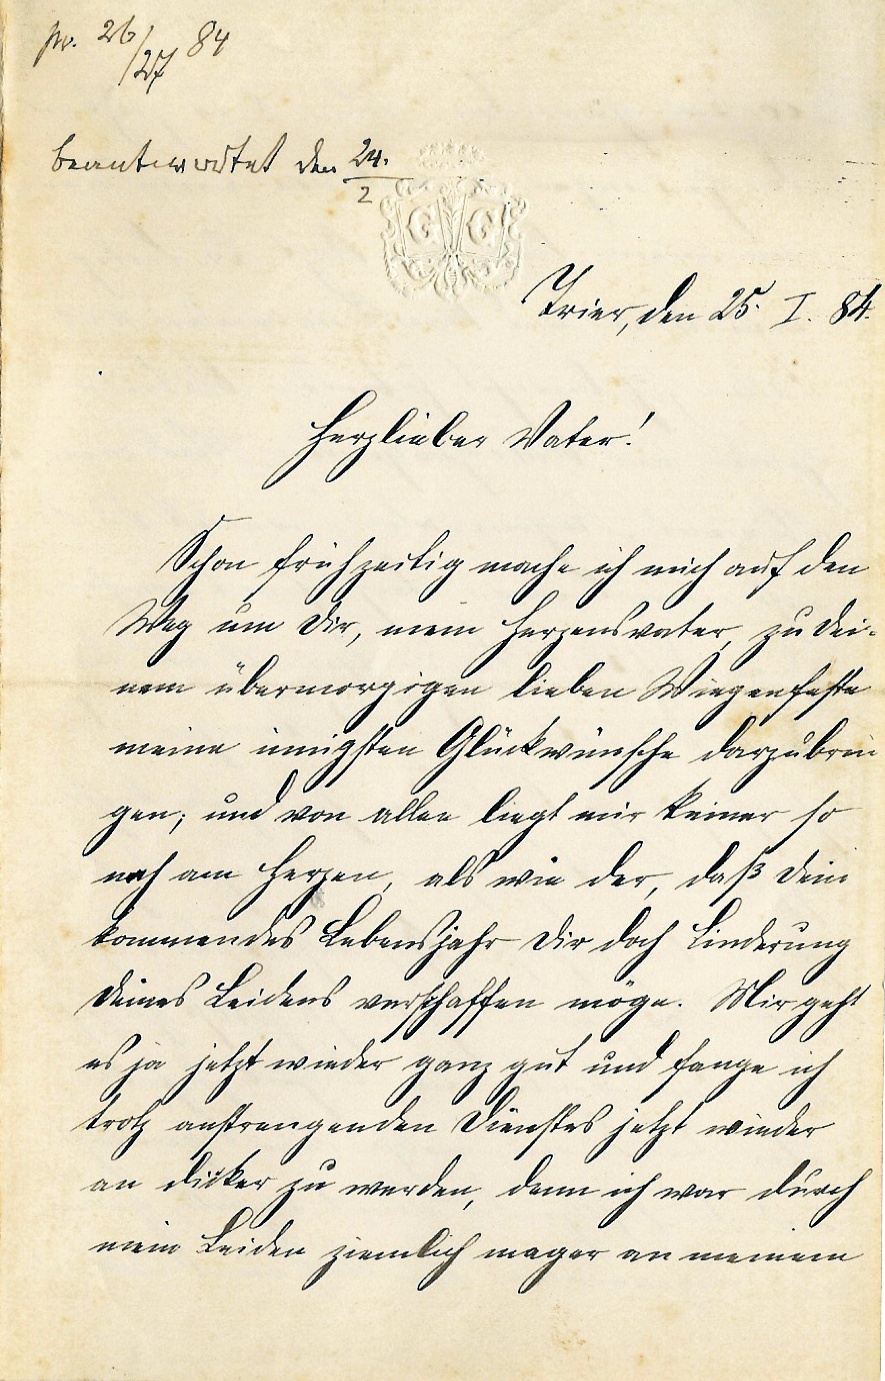 pr. 26/27 84
beantwortet den 24./2
G G
Trier, den 25. I. 84.
Herzlieber Vater!
Schon frühzeitig mache ich mich auf den
Weg um Dir, mein Herzensvater, zu Dei-
nem übermorgigen lieben Wiegenfeste
meine innigsten Glückwünsche darzubrin
gen; und von allen liegt mir keiner so
nah am Herzen, als wie der, daß Dein
kommendes Lebensjahr Dir doch Linderung
Deines Leidens verschaffen möge. Mir geht
es ja jetzt wieder ganz gut und fange ich
trotz anstrengenden Dienstes jetzt wieder
an dicker zu werden, denn ich war durch
mein Leiden ziemlich mager an meinem